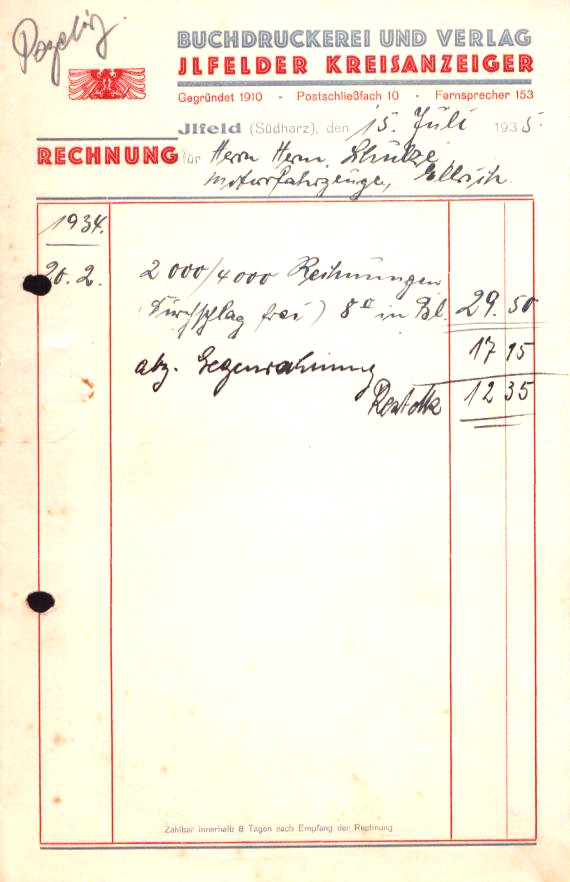 BUCHDRUCKEREI UND VERLAG
JLFELDER KREISANZEIGER
Gegründet 1910 - Postschließfach 10 - Fernsprecher 153
Jlfeld (Südharz), den 15. Juli 1935.
RECHNUNG für Herrn Herm. Schulze,
Motorfahrzeuge, Ellrich.
1934.
20. 2. 2000/4000 Rechnungen
(Durchschlag frei) 8° in Bl. 29.50
abz. Gegenrechnung 17 15
Rest Mk 12 35
Zahlbar innerhalb 8 Tagen nach Empfang der Rechnung